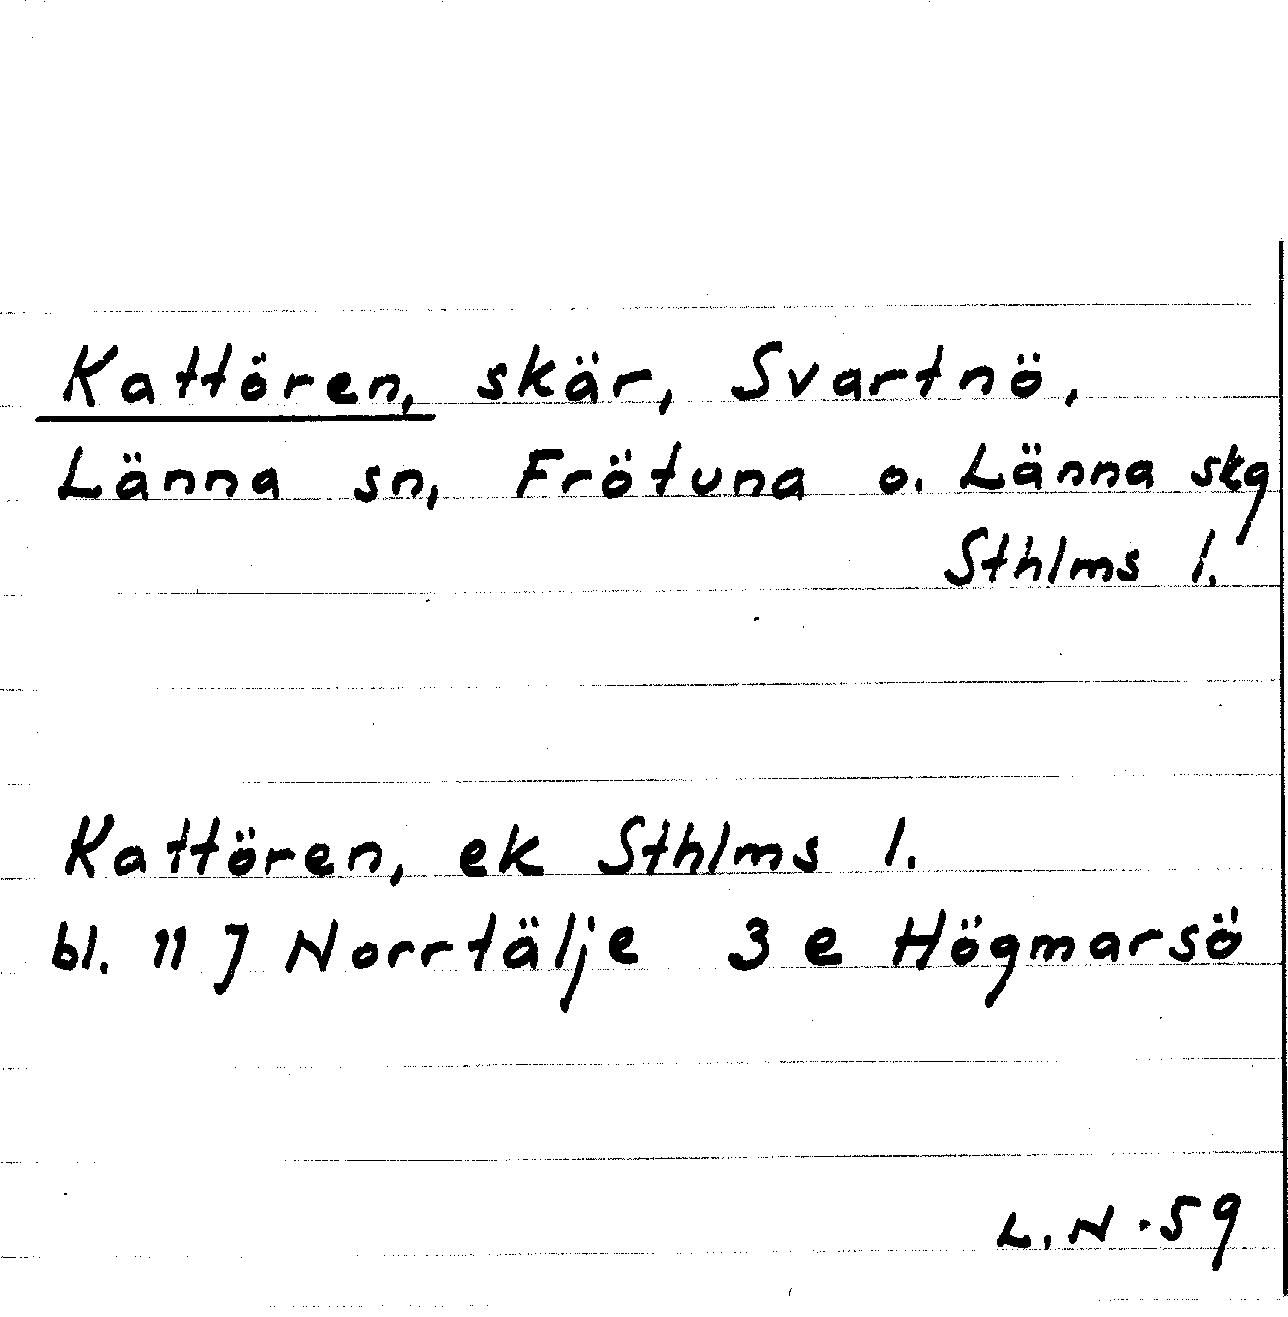 Kattören, skär, Svartnö,
Länna sn, Frötuna o. Länna skg
Sthlms l.
Kattören, ek Sthlms l.
bl. 11 J Norrtälje 3 e Högmarsö
L.N. 59